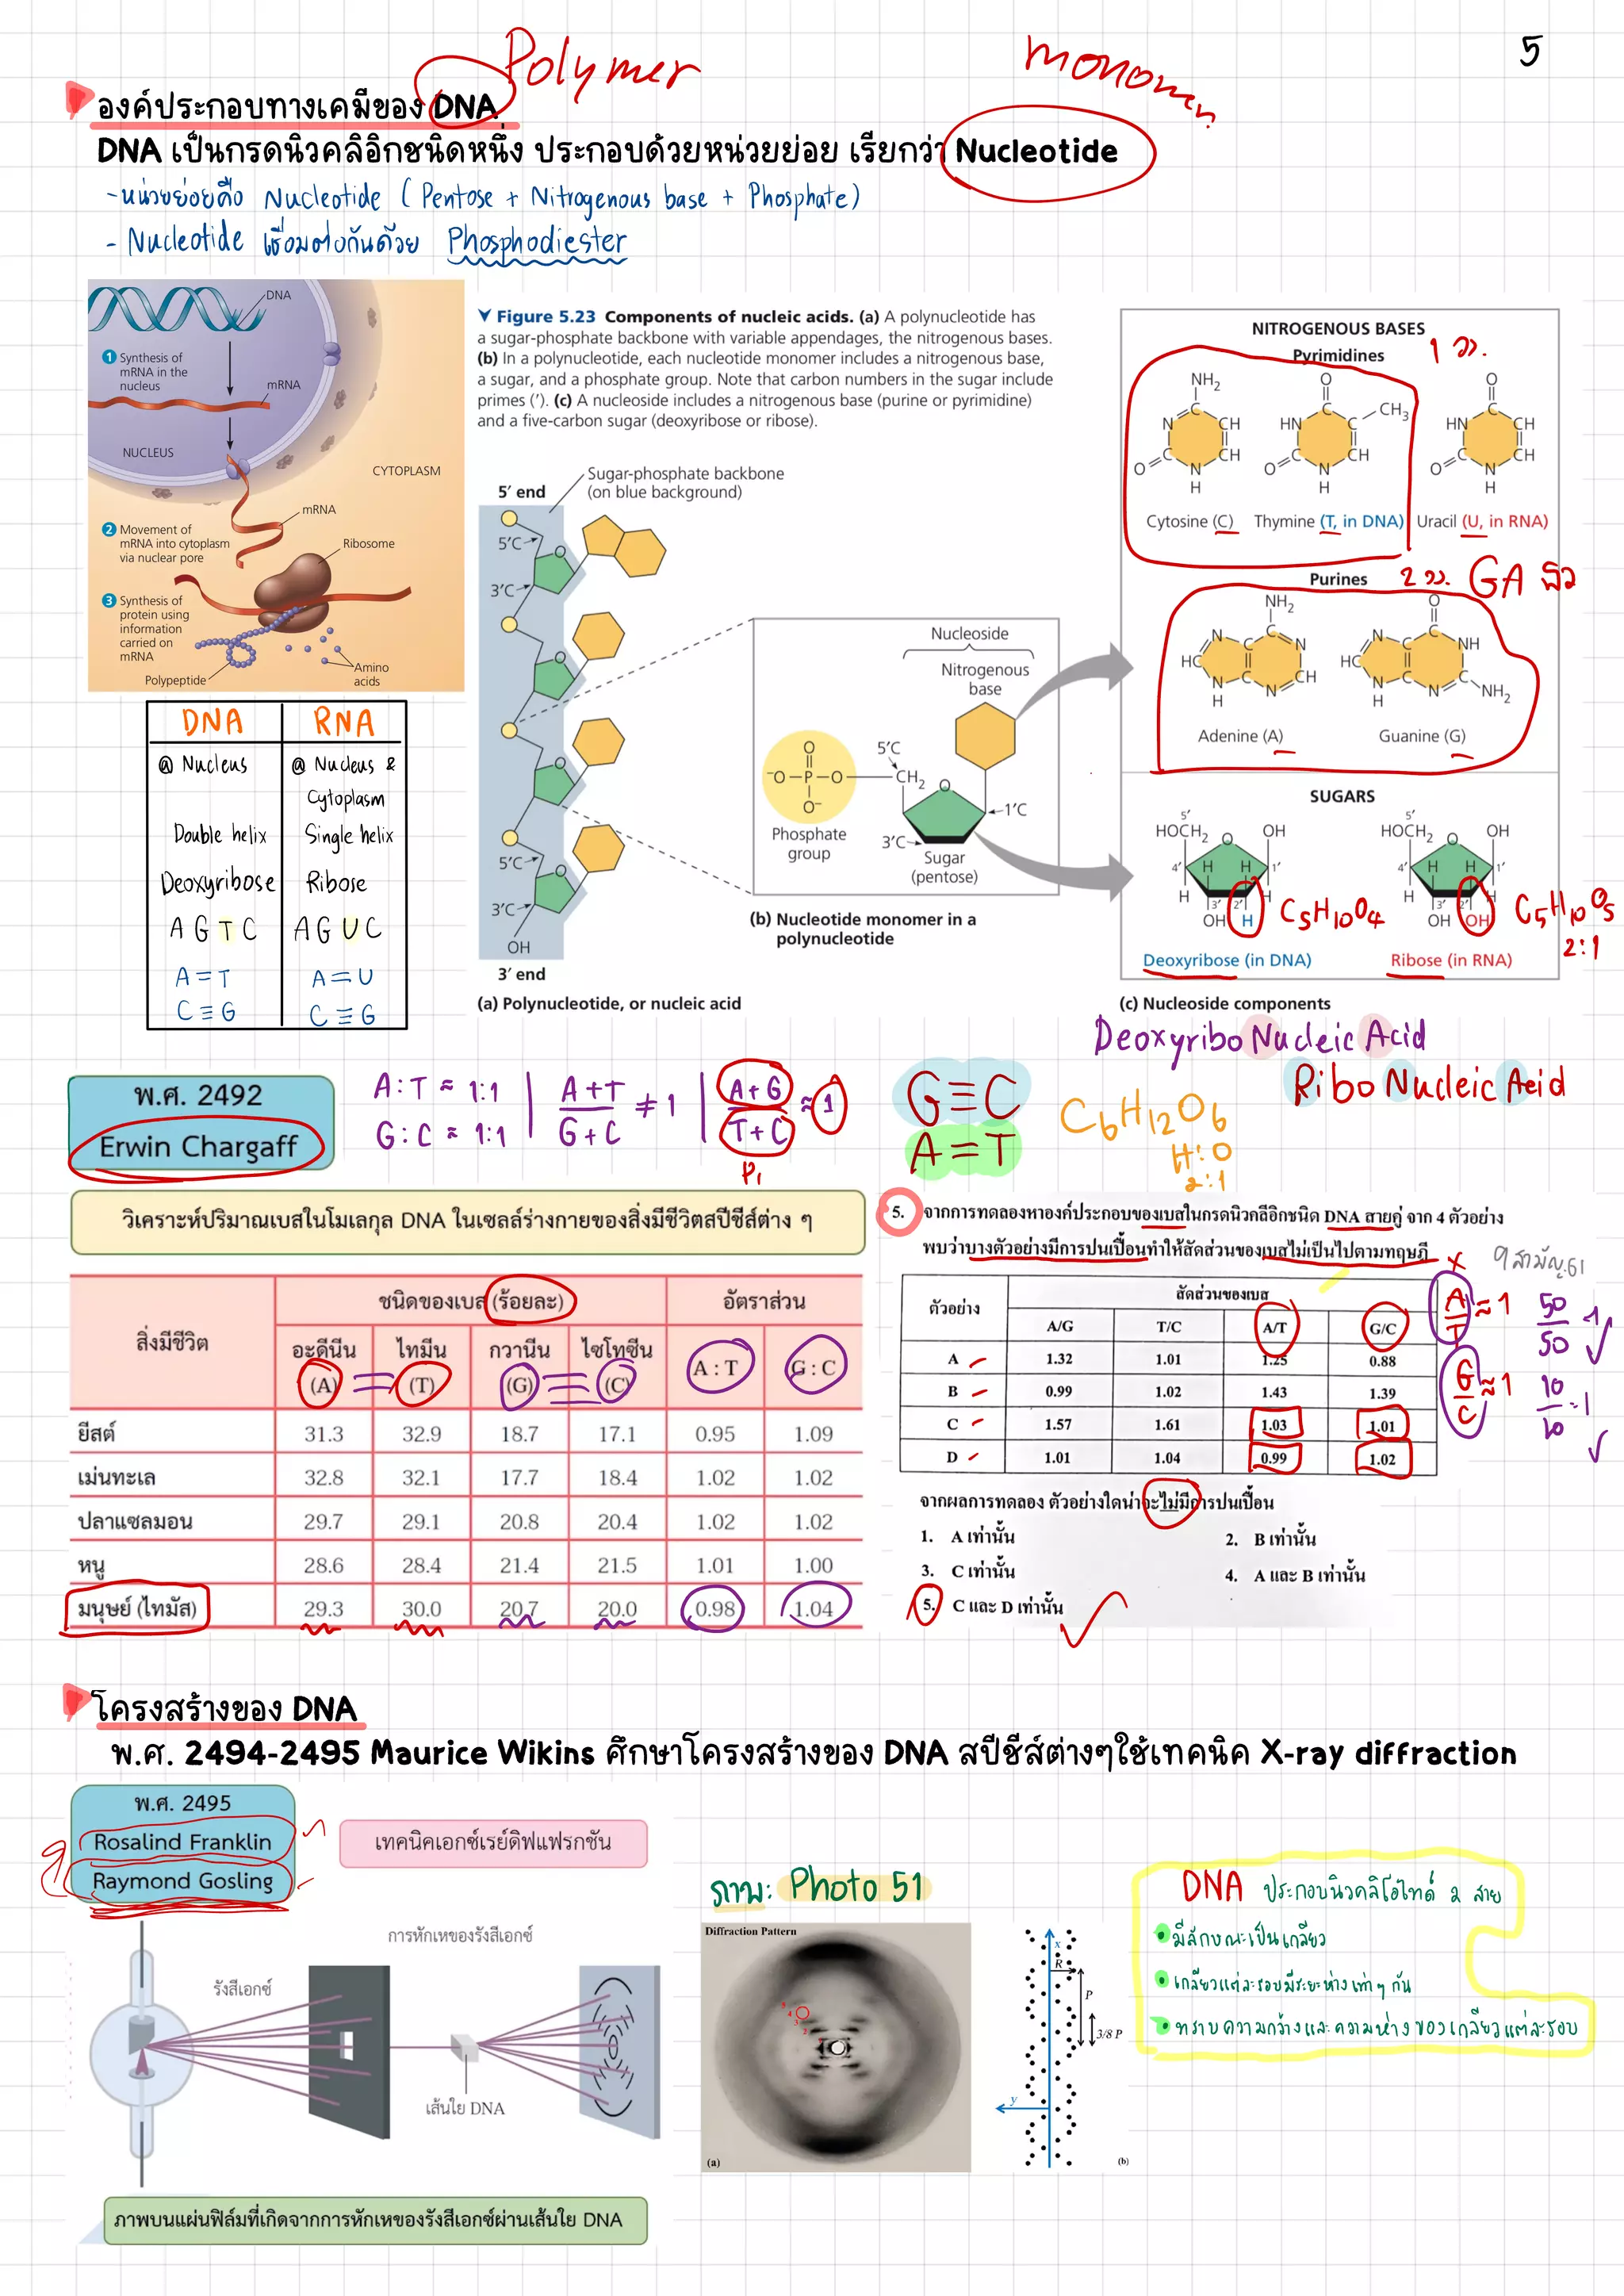 5
Polymer
monomer
องค์ประกอบทางเคมีของ DNA
DNA เป็นกรดนิวคลิอิกชนิดหนึ่ง ประกอบด้วยหน่วยย่อย เรียกว่า Nucleotide
-หน่วยย่อยคือ Nucleotide (Pentose + Nitrogenous base + Phosphate)
- Nucleotide เชื่อมต่อกันด้วย Phosphodiester
DNA
1 Synthesis of
mRNA in the
nucleus
mRNA
NUCLEUS
CYTOPLASM
mRNA
2 Movement of
mRNA into cytoplasm
via nuclear pore
Ribosome
3 Synthesis of
protein using
information
carried on
mRNA
Amino
acids
Polypeptide
Figure 5.23 Components of nucleic acids. (a) A polynucleotide has
a sugar-phosphate backbone with variable appendages, the nitrogenous bases.
(b) In a polynucleotide, each nucleotide monomer includes a nitrogenous base,
a sugar, and a phosphate group. Note that carbon numbers in the sugar include
primes (′). (c) A nucleoside includes a nitrogenous base (purine or pyrimidine)
and a five-carbon sugar (deoxyribose or ribose).
Sugar-phosphate backbone
(on blue background)
5′ end
5′C
3′C
5′C
3′C
OH
3′ end
(a) Polynucleotide, or nucleic acid
Nucleoside
Nitrogenous
base
O
⁻O—P—O
O⁻
5′C
CH₂
O
1′C
3′C
Phosphate
group
Sugar
(pentose)
(b) Nucleotide monomer in a
polynucleotide
NITROGENOUS BASES
Pyrimidines
1 วง.
NH₂ O O
CH₃
Cytosine (C) Thymine (T, in DNA) Uracil (U, in RNA)
Purines
2 วง. GA
NH₂ O
Adenine (A) Guanine (G)
SUGARS
5′ HOCH₂ O OH
5′ HOCH₂ O OH
4′ H H 1′
4′ H H 1′
H 3′ 2′ H
OH H
OH OH
C5H10O4
C5H10O5
2:1
Deoxyribose (in DNA) Ribose (in RNA)
(c) Nucleoside components
DNA RNA
@ Nucleus @ Nucleus &
Cytoplasm
Double helix Single helix
Deoxyribose Ribose
A G T C A G U C
A=T A=U
C≡G C≡G
Deoxyribo Nucleic Acid
Ribo Nucleic Acid
พ.ศ. 2492
Erwin Chargaff
A:T ≈ 1:1
G:C ≈ 1:1
A+T / G+C ≠ 1
A+G / T+C ≈ 1
G≡C
A=T
C6H12O6
H:O
2:1
วิเคราะห์ปริมาณเบสในโมเลกุล DNA ในเซลล์ร่างกายของสิ่งมีชีวิตสปีชีส์ต่าง ๆ
สิ่งมีชีวิต ชนิดของเบส (ร้อยละ) อัตราส่วน
อะดีนีน (A) ไทมีน (T) กวานีน (G) ไซโทซีน (C) A : T G : C
ยีสต์ 31.3 32.9 18.7 17.1 0.95 1.09
เม่นทะเล 32.8 32.1 17.7 18.4 1.02 1.02
ปลาแซลมอน 29.7 29.1 20.8 20.4 1.02 1.02
หนู 28.6 28.4 21.4 21.5 1.01 1.00
มนุษย์ (ไทมัส) 29.3 30.0 20.7 20.0 0.98 1.04
5. จากการทดลองหาองค์ประกอบของเบสในกรดนิวกลีอิกชนิด DNA สายคู่ จาก 4 ตัวอย่าง
พบว่าบางตัวอย่างมีการปนเปื้อนทำให้สัดส่วนของเบสไม่เป็นไปตามทฤษฎี
9 สามัญ 61
ตัวอย่าง สัดส่วนของเบส
A/G T/C A/T G/C
A 1.32 1.01 1.25 0.88
B 0.99 1.02 1.43 1.39
C 1.57 1.61 1.03 1.01
D 1.01 1.04 0.99 1.02
A/T ≈ 1
50/50 =1
G/C ≈ 1
10/10 =1
จากผลการทดลอง ตัวอย่างใดน่าจะไม่มีการปนเปื้อน
1. A เท่านั้น 2. B เท่านั้น
3. C เท่านั้น 4. A และ B เท่านั้น
5. C และ D เท่านั้น
โครงสร้างของ DNA
พ.ศ. 2494-2495 Maurice Wikins ศึกษาโครงสร้างของ DNA สปีชีส์ต่างๆใช้เทคนิค X-ray diffraction
พ.ศ. 2495
Rosalind Franklin
Raymond Gosling
เทคนิคเอกซ์เรย์ดิฟแฟรกชัน
การหักเหของรังสีเอกซ์
รังสีเอกซ์
เส้นใย DNA
ภาพบนแผ่นฟิล์มที่เกิดจากการหักเหของรังสีเอกซ์ผ่านเส้นใย DNA
ภาพ: Photo 51
Diffraction Pattern
(a)
x
R
P
3/8 P
y
(b)
DNA ประกอบนิวคลิโอไทด์ 2 สาย
มีลักษณะเป็นเกลียว
เกลียวแต่ละรอบมีระยะห่างเท่าๆ กัน
ทราบความกว้างและความห่างของเกลียวแต่ละรอบ